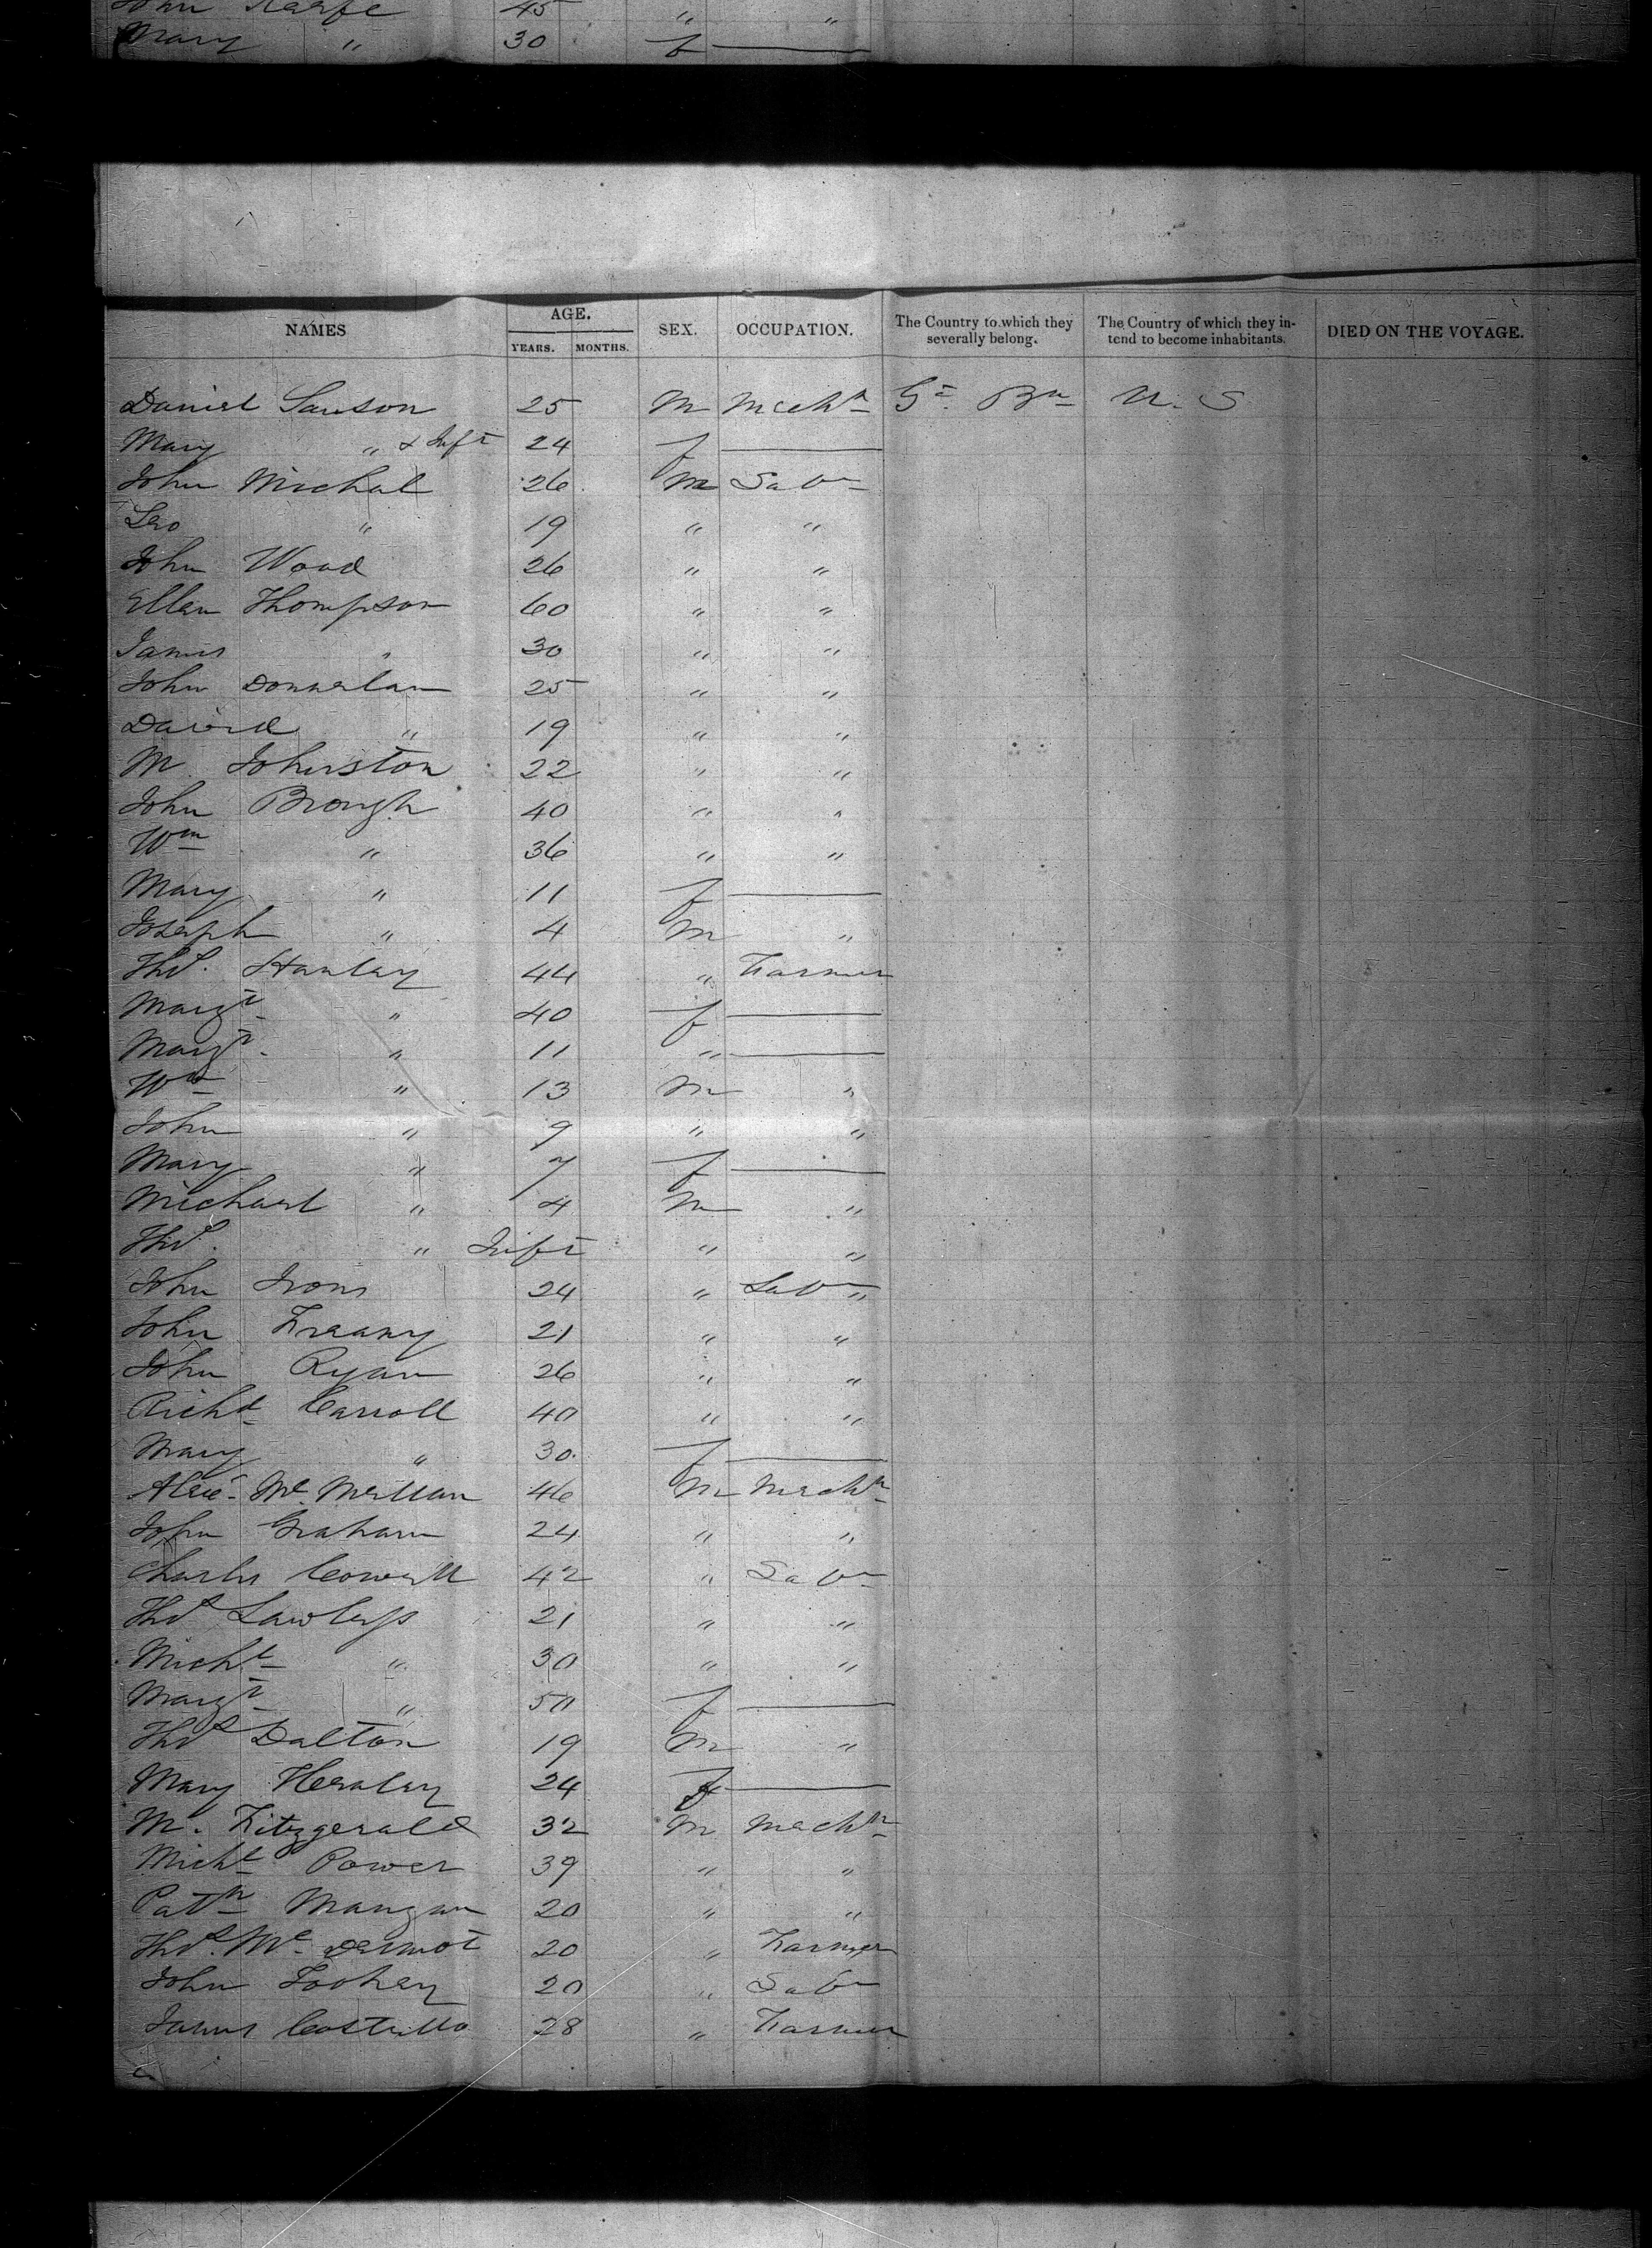 John Keefe 45 " "
Mary " 30 f —
NAMES AGE. YEARS. MONTHS. SEX. OCCUPATION. The Country to which they severally belong. The Country of which they intend to become inhabitants. DIED ON THE VOYAGE.
Daniel Sawson 25 M Mechn Gt. Bn U. S
Mary " & Inft 24 f —
John Michal 26 M Labr
Leo " 19 " "
John Wood 26 " "
Ellen Thompson 60 " "
James " 30 " "
John Donnelan 25 " "
David " 19 " "
M. Johnston 22 " "
John Brough 40 " "
Wm " 36 " "
Mary " 11 f —
Joseph " 4 M "
Thos. Hanley 44 " Farmer
Margt " 40 f —
Margt. " 11 " —
Wm " 13 M "
John " 9 " "
Mary " 7 f —
Michael " 4 M "
Thos. " Inft " "
John Irons 24 " Labr "
John Freany 21 " "
John Ryan 26 " "
Richd Carroll 40 " "
Mary " 30 f —
Alexr. Mc Mellan 46 M Mechn
John Graham 24 " "
Charles Cowell 42 " Labr
Thos Lawless 21 " "
Michl " 30 " "
Margt " 50 f —
Thos Dalton 19 M "
Mary Healey 24 f —
M. Fitzgerald 32 M Mechn
Michl Power 39 " "
Patk Mangan 20 " "
Thos. Mc Dermot 20 " Farmer
John Toohey 20 " Labr
James Costello 28 " Farmer